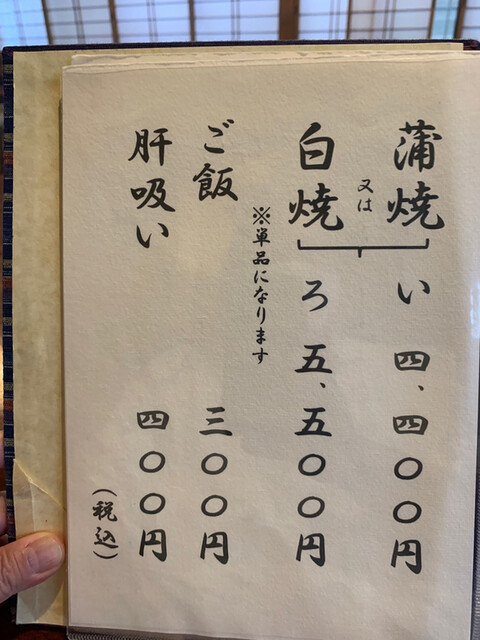 蒲焼
又は
白焼
い 四、四〇〇円
ろ 五、五〇〇円
※単品になります
ご飯 三〇〇円
肝吸い 四〇〇円
(税込)